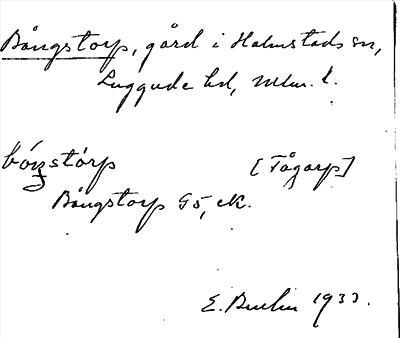 Bångstorp, gård i Halmstads sn,
Luggude hd, Mlm. l.
bóŋstórp [Tågarp]
Bångstorp G5, ek.
E. Buelin 1933.